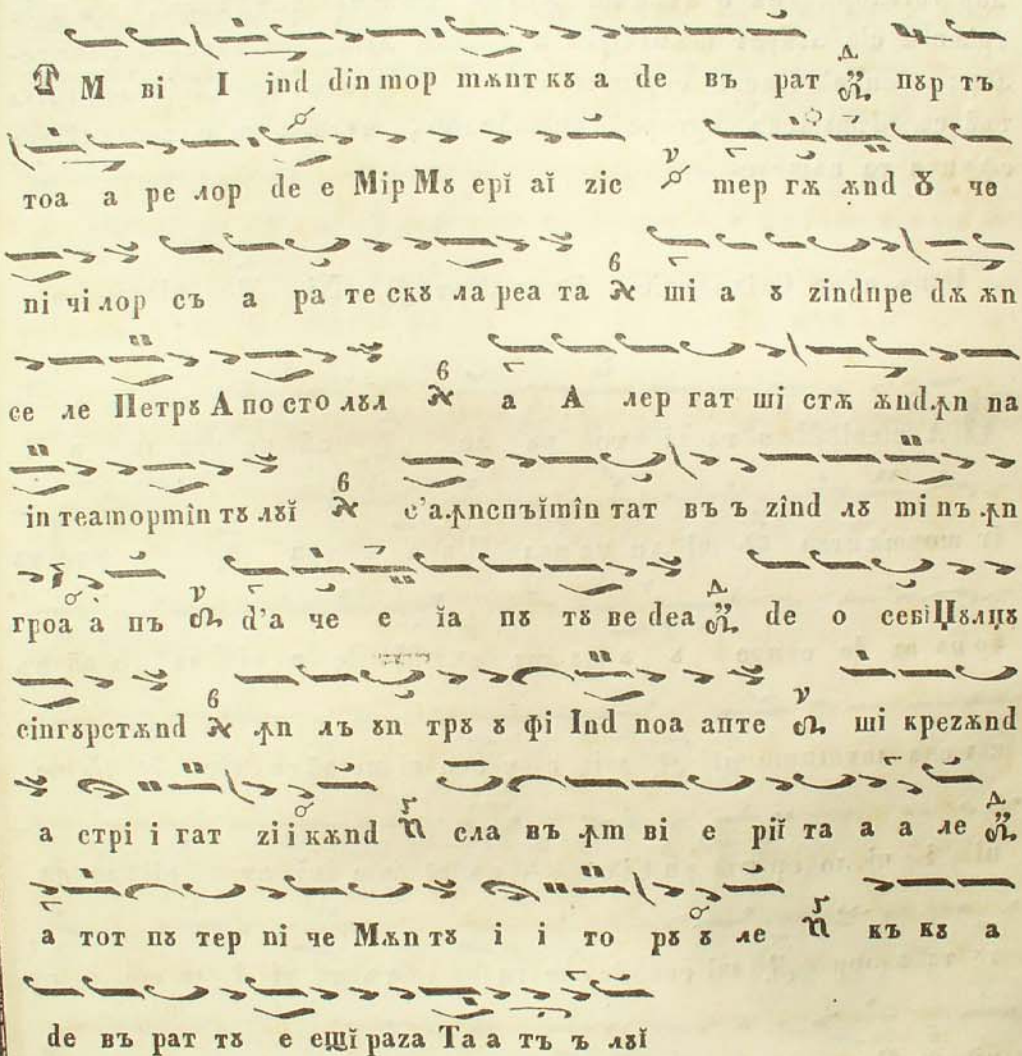 М ві І ind din mор mѫпт кꙋ а de въ рат пꙋр тъ
тоа а ре лор de е Мір Мꙋ ері̆ аі̆ zic mер гѫ ѫnd Ꙋ че
пі чі лор съ а ра те скꙋ ла реа та ші а ꙋ zindпре dѫ ѫп
се ле Петрꙋ А по сто лꙋл а А лер гат ші стѫ ѫnd.ꙟп па
in теаmорmіn тꙋ лꙋі̆ с’а.ꙟпспъі̆mіn тат въ ъ zînd лꙋ mі пъ ꙟп
гроа а пъ d’а че е і̆а пꙋ тꙋ ве dea de о севіЏꙋлџꙋ
сінгꙋрстѫnd ꙟп лъ ꙋп трꙋ ꙋ фі Ind поа апте ші креzѫnd
а стрі і гат zі і кѫnd сла въ ꙟm ві е рії та а а ле
а тот пꙋ тер пі че Мѫп тꙋ і і то рꙋ ꙋ ле къ кꙋ а
de въ рат тꙋ е ещі̆ раzа Та а тъ ъ лꙋі̆